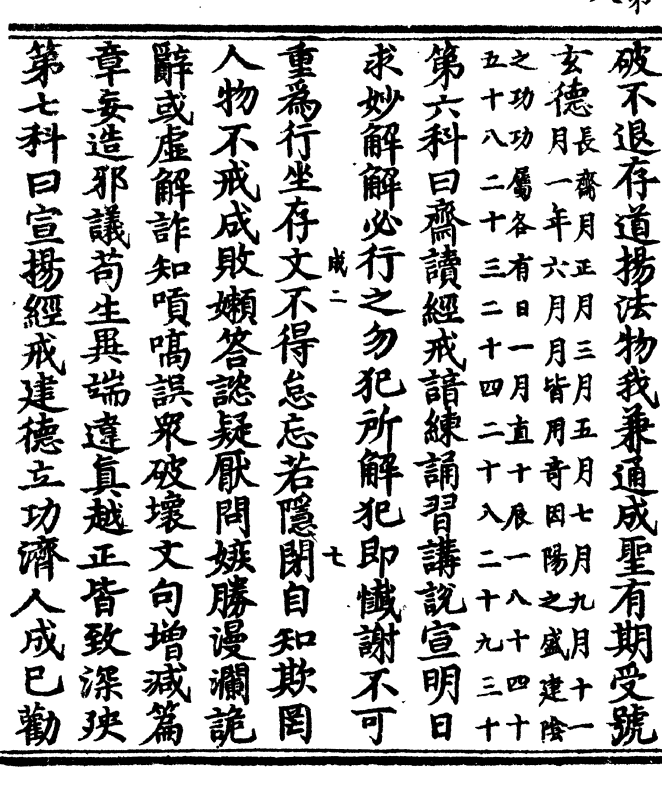 破不退存道揚法物我兼通成聖有期受號
玄德長齋月正月三月五月七月九月十一
月一年六月月皆用奇因陽之盛建陰
之功功屬各有日一月直十辰一八十四十
五十八二十三二十四二十八二十九三十
第六科曰齋讀經戒諳練誦習講說宣明日
求妙解解必行之勿犯所解犯即懺謝不可
成二 七
重爲行坐存文不得怠忘若隱閉自知欺罔
人物不戒成敗嬾答諮疑厭問嫉勝漫讕詭
辭或虛解詐知嘖嗃誤眾破壞文句增減篇
章妄造邪議苟生異端違真越正皆致深殃
第七科曰宣揚經戒建德立功濟人成已勸